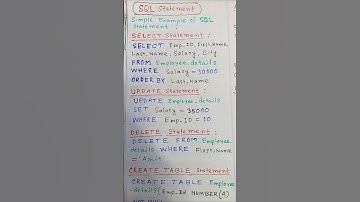 SQL Statement
Simple Example of SQL
Statement :
SELECT Statement :
SELECT Emp_ID, First_Name,
Last_Name, Salary, City
FROM Employee_details
WHERE Salary = 30000
ORDER BY Last_Name
UPDATE Statement :
UPDATE Employee_details
SET Salary = 35000
WHERE Emp_ID = 10
DELETE Statement :
DELETE FROM Employee_
details WHERE First_Name
= 'Amit'
CREATE TABLE Statement
CREATE TABLE Employee
-details (Emp_Id NUMBER(4)
NOT NULL